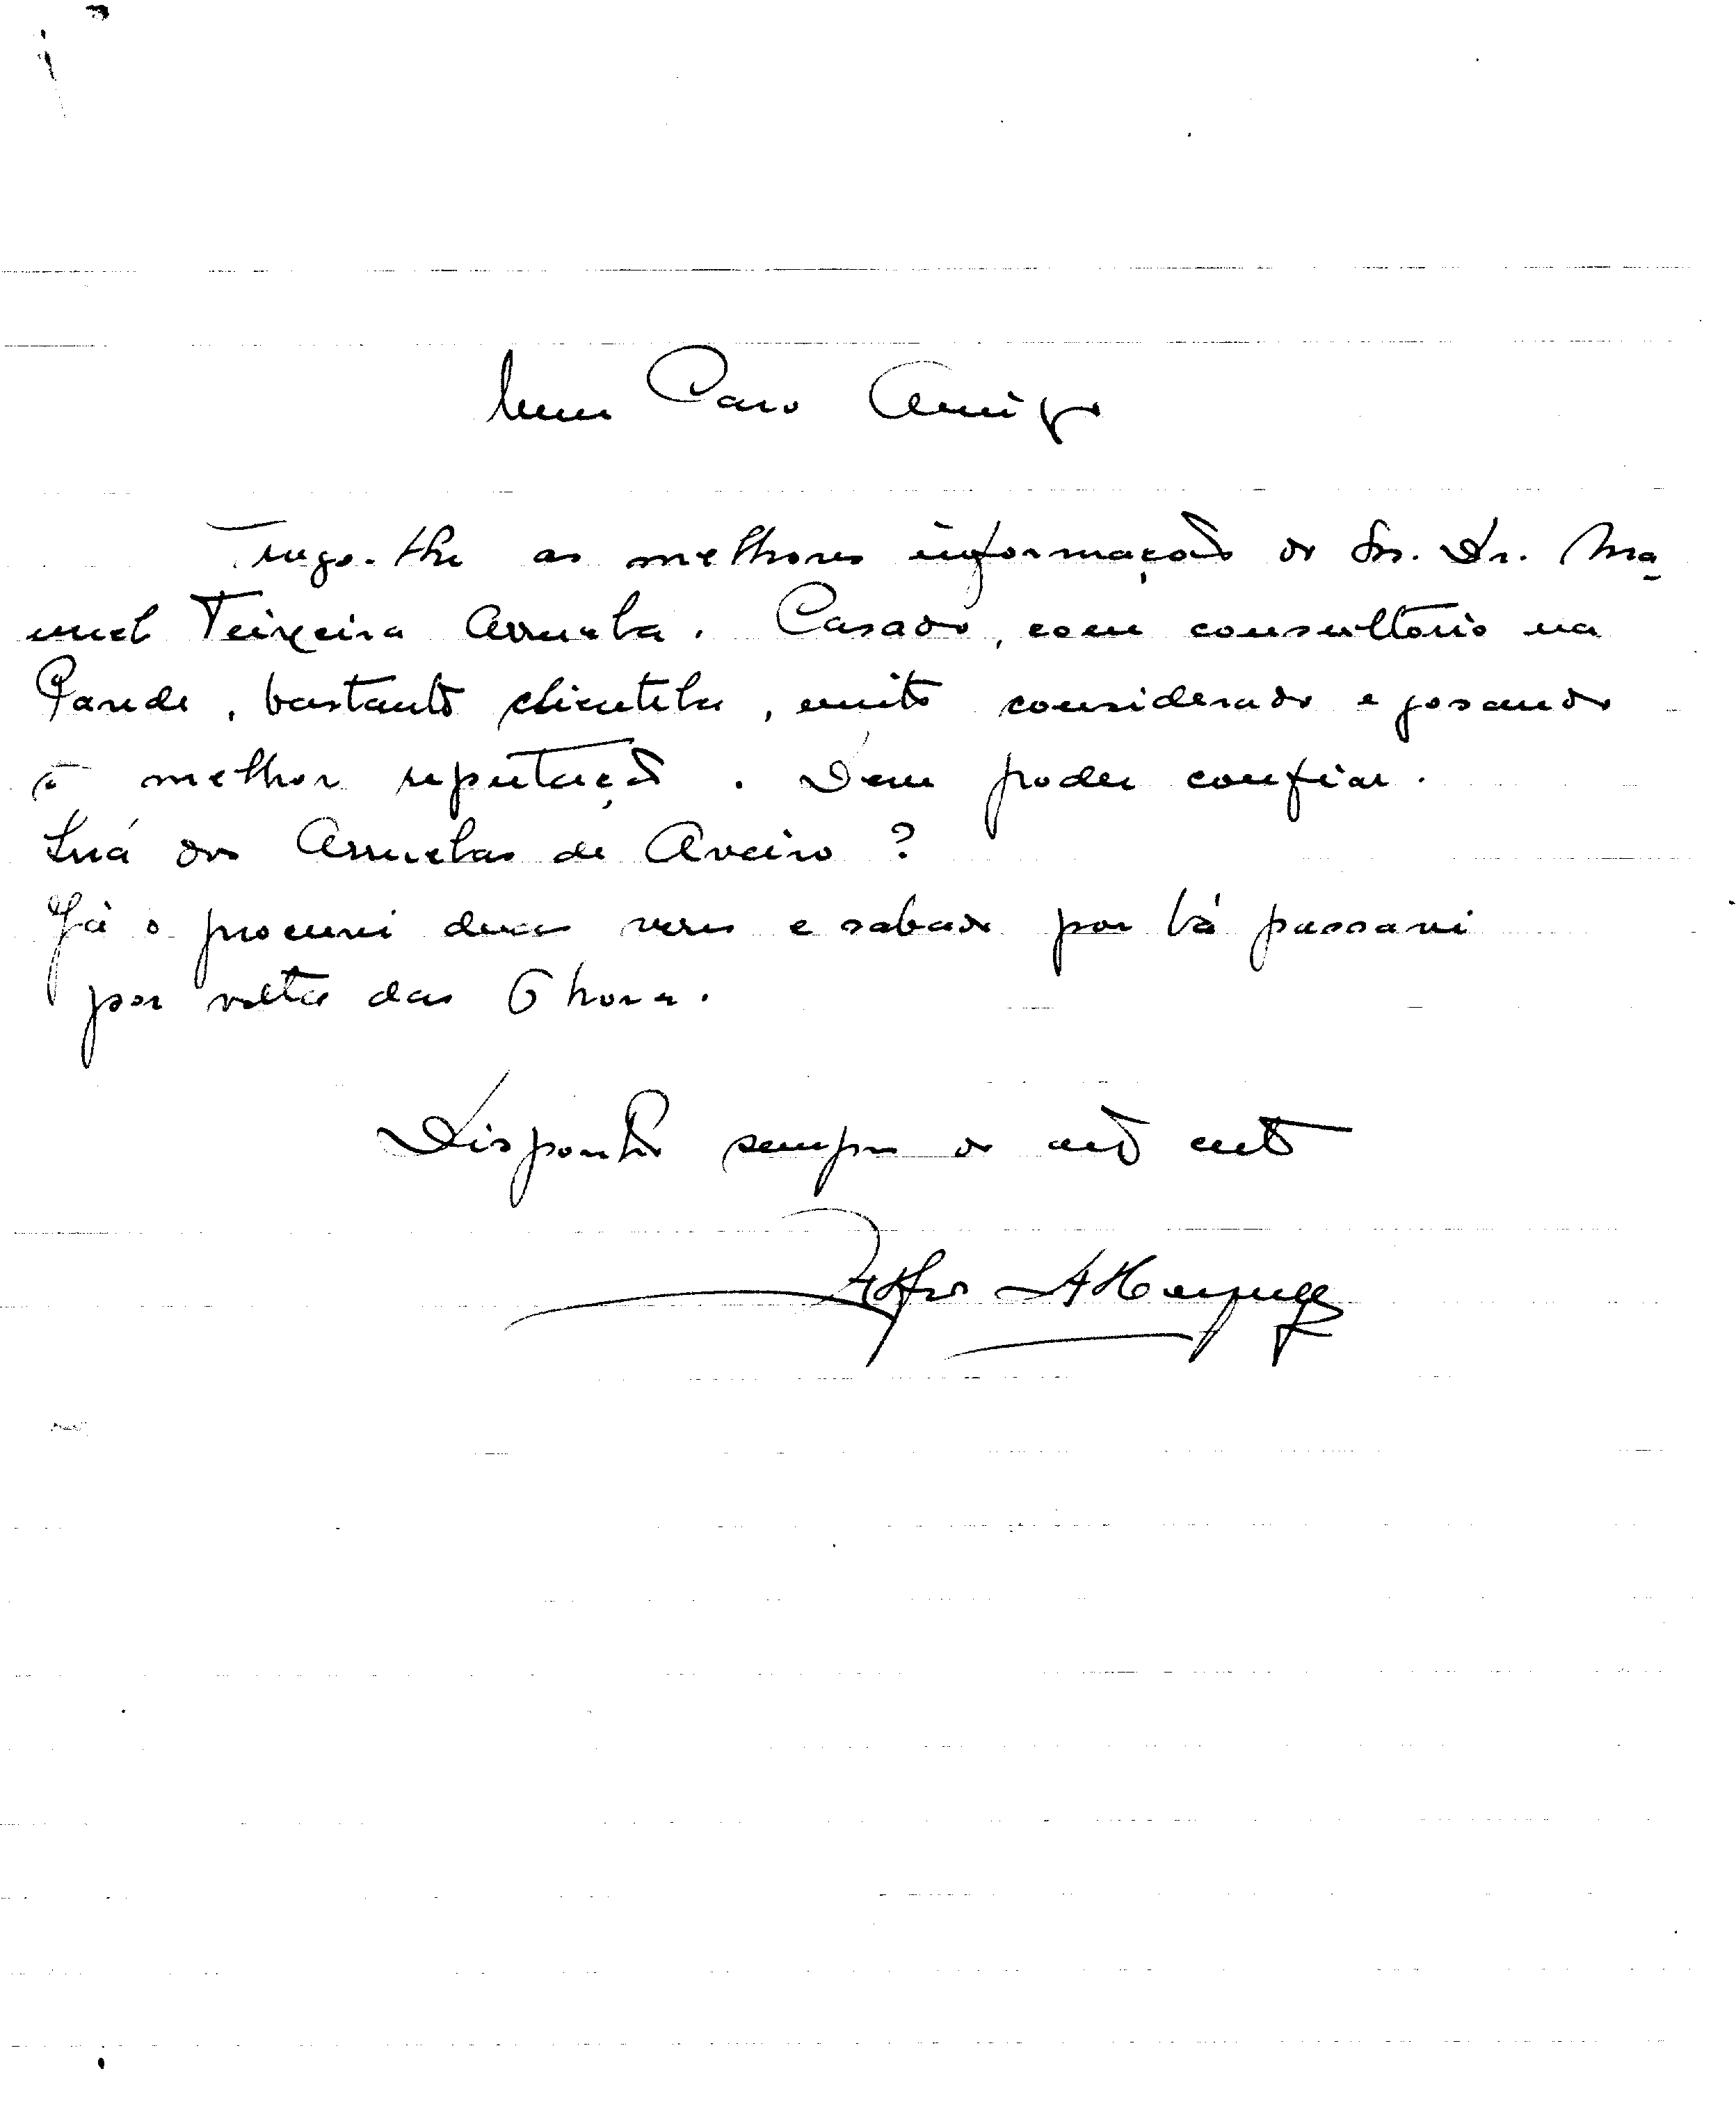 Meu Caro Amigo
Trago-lhe as melhores informações do Snr. Dr. Ma
nuel Teixeira Arruela. Casado, com consultorio na
Parede, bastante clientela, muito considerado e gosando
a melhor reputação. Deve poder confiar.
Será dos Arruelas de Aveiro?
Já o procurei duas vezes e sabado por lá passarei
por volta das 6 horas.
Disponha sempre do